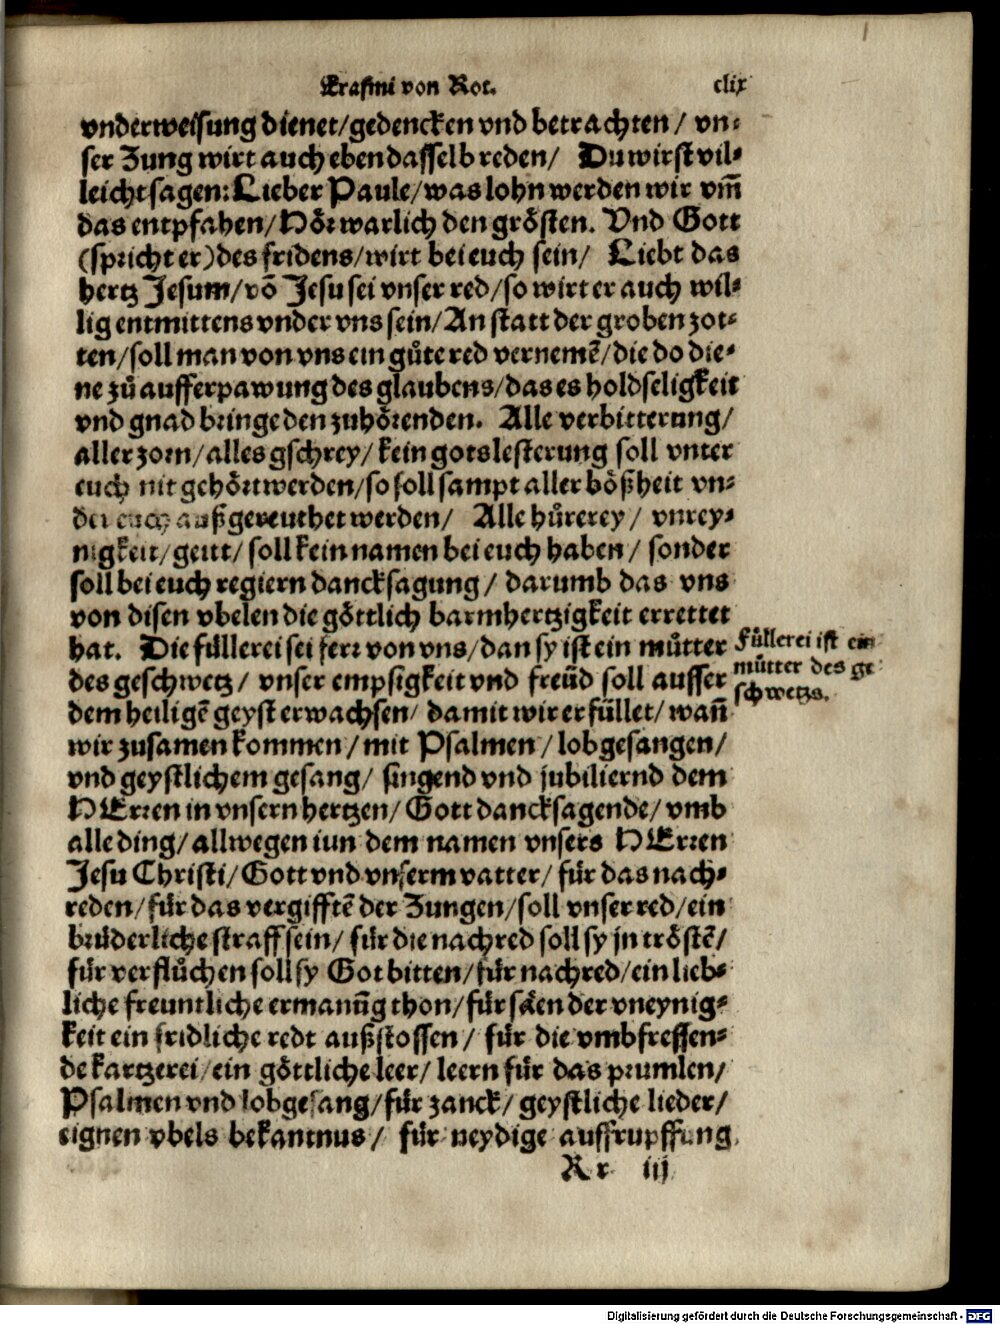 Erasmi von Rot. clix
vnderweisung dienet/gedencken vnd betrachten/ vn⸗
ser Zung wirt auch eben dasselb reden/ Du wirst vil⸗
leicht sagen: Lieber Paule/was lohn werden wir vm̃
das entpfahen/Hoͤr warlich den groͤsten. Vnd Gott
(spricht er) des fridens/wirt bei euch sein/ Liebt das
hertz Jesum/võ Jesu sei vnser red/so wirt er auch wil⸗
lig entmittens vnder vns sein/An statt der groben zot⸗
ten/soll man von vns ein guͤte red vernemẽ/die do die⸗
ne zuͦ aufferpawung des glaubens/das es holdseligkeit
vnd gnad bringe den zuhoͤrenden. Alle verbitterung/
aller zorn/alles gschrey/kein gotslesterung soll vnter
euch nit gehoͤrt werden/so soll sampt aller boͤßheit vn⸗
der euch außgereuthet werden/ Alle huͤrerey/ vnrey⸗
nigkeit/geitt/soll kein namen bei euch haben/ sonder
soll bei euch regiern dancksagung/ darumb das vns
von disen vbelen die goͤttlich barmhertzigkeit errettet
hat. Die fuͤllerei sei ferr von vns/dan sy ist ein muͤtter
des geschwetz/ vnser empsigkeit vnd freüd soll ausser
dem heiligẽ geyst erwachsen/ damit wir erfuͤllet/wañ
wir zusamen kommen/mit Psalmen/lobgesangen/
vnd geystlichem gesang/ singend vnd jubiliernd dem
HErren in vnsern hertzen/Gott dancksagende/vmb
alle ding/allwegen inn dem namen vnsers HErren
Jesu Christi/Gott vnd vnserm vatter/fuͤr das nach⸗
reden/fuͤr das vergifftẽ der Zungen/soll vnser red/ein
bruͤderliche straff sein/ fuͤr die nachred soll sy jn troͤstẽ/
fuͤr verfluͤchen soll sy Got bitten/fuͤr nachred/ein lieb⸗
liche freuntliche ermanũg thon/fuͤr saͤen der vneynig⸗
keit ein fridliche redt außstossen/ fuͤr die vmbfressen⸗
de kartzerei/ein goͤttliche leer/leern fuͤr das prumlen/
Psalmen vnd lobgesang/fuͤr zanck/geystliche lieder/
eignen vbels bekantnus/ fuͤr neydige auffrupffung
Rr iij
Fuͤllerei ist ein
muͤtter des ge
schwetzs.
Digitalisierung gefördert durch die Deutsche Forschungsgemeinschaft - DFG